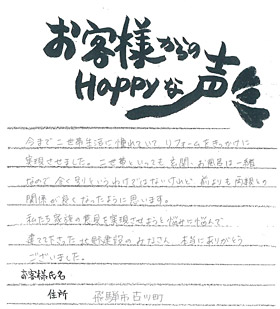 お客様からの
Happyな声
今まで二世帯生活に憧れていて リフォームをきっかけに
実現させました。二世帯といっても玄関、お風呂は一緒
なので 全く別というわけではないけれど 前よりも両親との
関係が良くなったように思います。
私たち家族の意見を実現させようと悩みに悩んで
建てて下さった 建設のみなさん 本当にありがとう
ございました。
お客様氏名
住所 飛騨市古川町